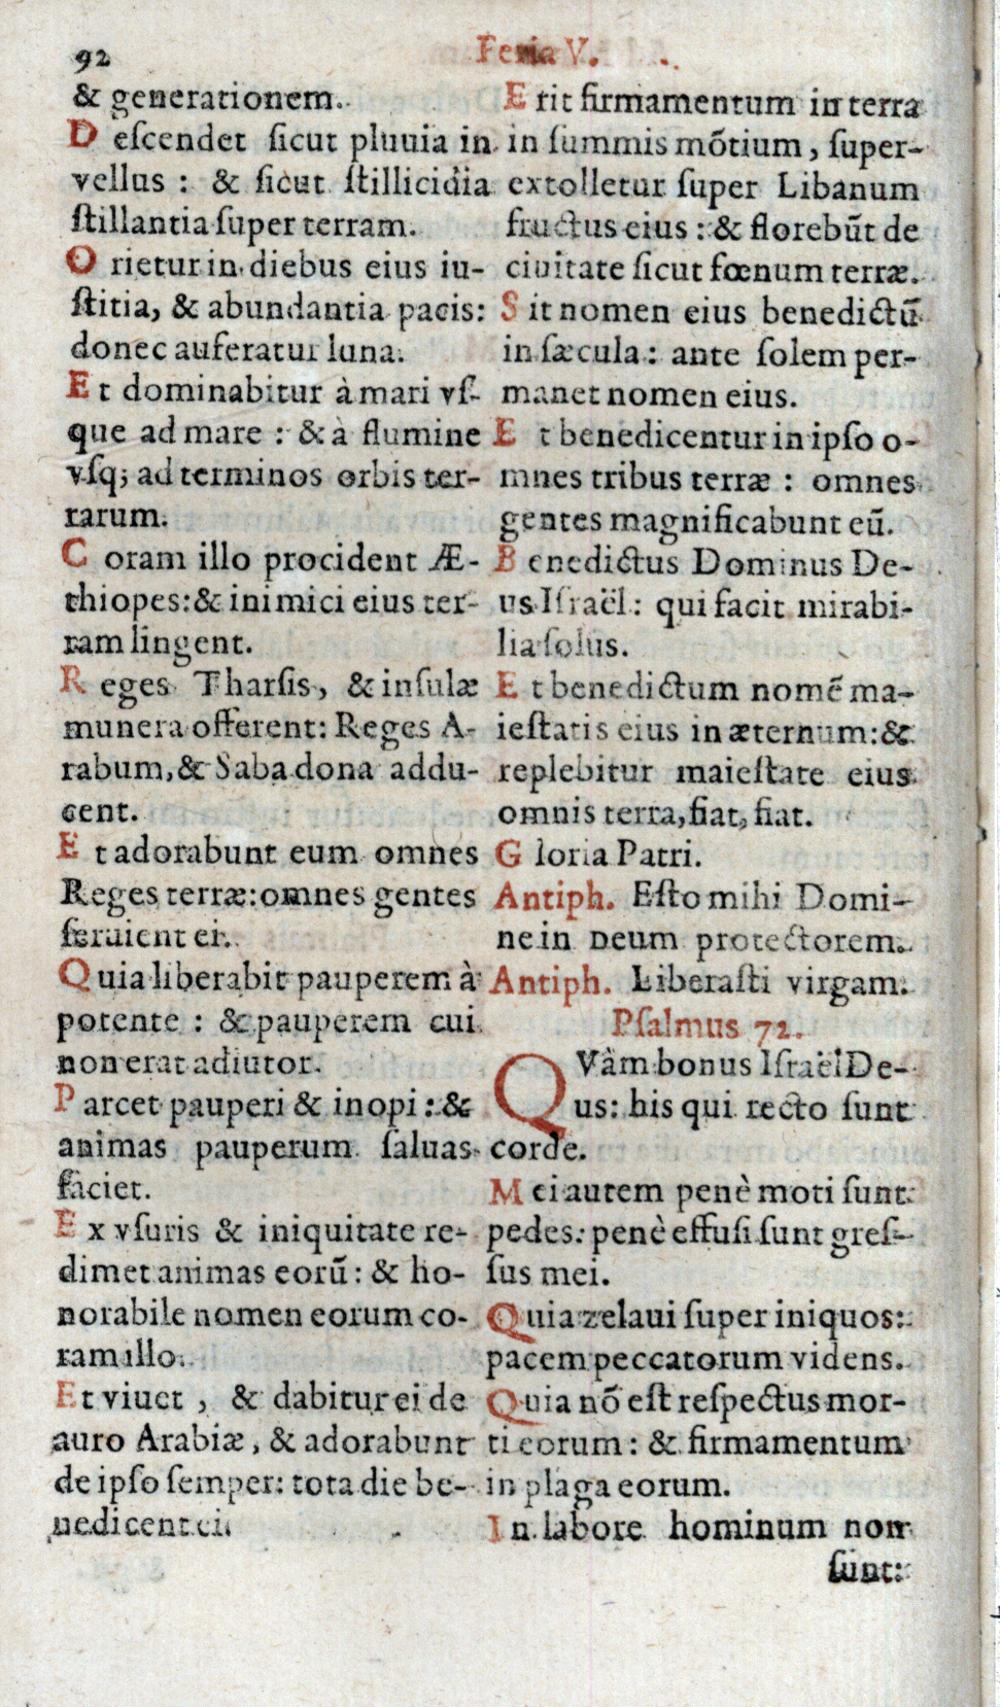 92
Feria V.
& generationem.
D escendet ſicut pluuia in
vellus : & ſicut ſtillicidia
ſtillantia ſuper terram.
O rietur in diebus eius iu-
ſtitia, & abundantia pacis:
donec auferatur luna.
E t dominabitur à mari vſ-
que ad mare : & à flumine
vſq; ad terminos orbis ter-
rarum.
C oram illo procident Æ-
thiopes: & inimici eius ter-
ram lingent.
R eges Tharſis, & inſulæ
munera offerent: Reges A-
rabum, & Saba dona addu-
cent.
E t adorabunt eum omnes
Reges terræ: omnes gentes
ſeruient ei.
Q uia liberabit pauperem à
potente : & pauperem cui
non erat adiutor.
P arcet pauperi & inopi : &
animas pauperum ſaluas
faciet.
E x vſuris & iniquitate re-
dimet animas eorū : & ho-
norabile nomen eorum co-
ram illo.
Et viuet , & dabitur ei de
auro Arabiæ, & adorabunt
de ipſo ſemper: tota die be-
nedicent ei.
E rit firmamentum in terra
in ſummis mōtium, ſuper-
extolletur ſuper Libanum
fructus eius : & florebūt de
ciuitate ſicut fœnum terræ.
S it nomen eius benedictū
in ſæcula : ante ſolem per-
manet nomen eius.
E t benedicentur in ipſo o-
mnes tribus terræ : omnes
gentes magnificabunt eū.
B enedictus Dominus De-
us Iſraël : qui facit mirabi-
lia ſolus.
E t benedictum nomē ma-
ieſtatis eius in æternum: &
replebitur maieſtate eius
omnis terra, fiat, fiat.
G loria Patri.
Antiph. Eſto mihi Domi-
ne in Deum protectorem.
Antiph. Liberaſti virgam.
Pſalmus 72.
QVàm bonus Iſraël De-
us: his qui recto ſunt
corde.
M ei autem penè moti ſunt
pedes: penè effuſi ſunt greſ-
ſus mei.
Quia zelaui ſuper iniquos:
pacem peccatorum videns.
Quia nō eſt reſpectus mor-
ti eorum : & firmamentum
in plaga eorum.
I n labore hominum non
ſunt: